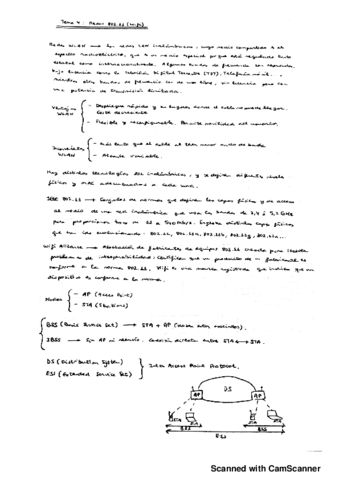 Tema 4 - Redes 802.11 (WiFi)
Redes WLAN son las redes LAN inalámbricas, cuyo medio compartido es el
espectro radioeléctrico, que es un medio especial porque está regulado tanto
estatal como internacionalmente. Algunas bandas de frecuencia son reservadas,
bajo licencia como la Televisión Digital Terrestre (TDT), Telefonía móvil...
siendo otras bandas de frecuencia son de uso libre, sin licencia pero con
una potencia de transmisión limitada.
Ventajas WLAN
- Despliegue rápido y en lugares donde el cable no puede llegar.
Coste decreciente
- Flexible y reconfigurable. Permite movilidad del usuario.
Inconvenientes WLAN
- Más lento que el cable al tener menor ancho de banda
- Alcance variable.
Hay distintas tecnologías inalámbricas, y se definen diferentes niveles
físico y MAC a cada una.
IEEE 802.11 → Conjunto de normas que definen las capas física y de acceso
al medio de una red inalámbrica que usa la banda de 2,4 ó 5,2 GHz
para proporcionar tasas de Mbps. Existen distintas capas físicas
que han ido evolucionando: 802.11, 802.11a, 802.11b, 802.11g, 802.11n...
Wifi Alliance → Asociación de fabricantes de equipos 802.11 creada para resolver
problemas de interoperabilidad. Certifica que un producto de un fabricante es
conforme a la norma 802.11. Wifi es una marca registrada que indica que un
dispositivo es conforme a la norma.
Nodos
- AP (Access Point)
- STA (Stations)
BSS (Basic Service Set) → STA + AP
IBSS → Sin AP ni servicio. Conexión directa entre STA ↔ STA.
DS (Distribution System)
ESS (Extended Service Set)
Inter Access Point Protocol.
DS
AP
AP
BSS
BSS
ESS
Scanned with CamScanner